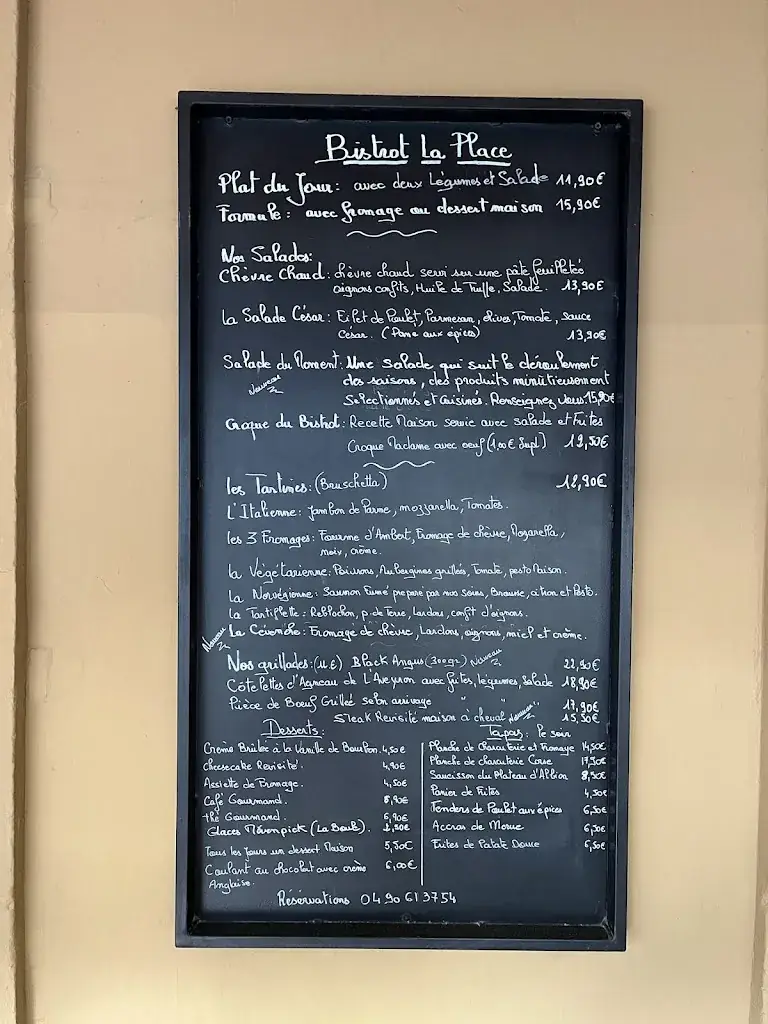 Bistrot La Place
Plat du Jour: avec deux Légumes et Salade 11,90€
Formule: avec fromage ou dessert maison 15,90€
Nos Salades:
Chèvre Chaud: chèvre chaud servi sur une pâte feuilletée
oignons confits, Huile de Truffe, Salade. 13,90€
La Salade César: Filet de Poulet, Parmesan, olives, Tomate, sauce
César. (Pane aux épices) 13,90€
Salade du Moment: Une Salade qui suit le déroulement
Nouveau des saisons, des produits minutieusement
Selectionnés et Cuisinés. Renseignez vous. 15,90€
Croque du Bistrot: Recette Maison servie avec salade et frites
Croque Madame avec oeuf (1,00€ Supl) 12,50€
les Tartines: (Bruschetta) 12,90€
L'Italienne: Jambon de Parme, mozzarella, Tomates.
les 3 Fromages: Fourme d'Ambert, Fromage de chèvre, Mozarella,
noix, crème.
la Végétarienne: Poivrons, Aubergines grillées, Tomate, pesto Maison.
la Norvégienne: Saumon Fumé prepare par nos soins, citron et Pesto.
la Tartiflette: Reblochon, p. de Terre, Lardons, confit d'oignons.
Nouveau La Cévenole: Fromage de chèvre, Lardons, oignons, miel et crème.
Nos grillades: (U.E) Black Angus (300gr) Nouveau 22,90€
Côtelettes d'Agneau de L'Aveyron avec frites, légumes, Salade 18,90€
Pièce de Boeuf Grillée selon arrivage " " 17,90€
Steak Revisité maison à cheval Nouveau 15,50€
Desserts:
Crème Brûlée à la Vanille de Bourbon. 4,50€
Cheesecake Revisité. 4,90€
Assiette de Fromage. 4,50€
Café Gourmand. 6,90€
thé Gourmand. 6,90€
Glaces Mövenpick (La Boule). 2,50€
Tous les Jours un dessert Maison 5,50€
Coulant au chocolat avec crème 6,00€
Anglaise.
Tapas: le soir
Planche de charcuterie et Fromage 14,50€
Planche de charcuterie Corse 17,50€
Saucisson du Plateau d'Albion 8,50€
Panier de Frites 4,50€
Tenders de Poulet aux épices 6,50€
Accras de Morue 6,50€
Frites de Patate Douce 6,50€
Réservations 04 90 61 37 54